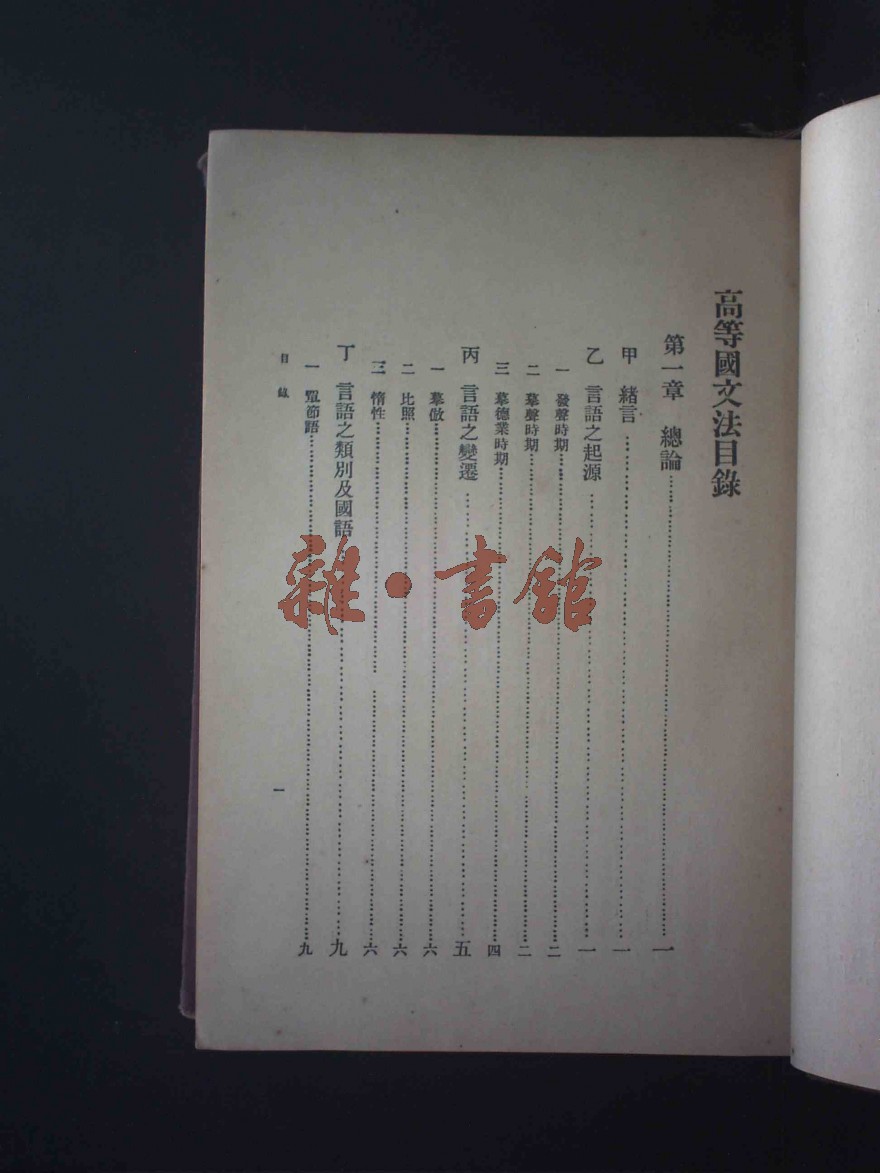 高等國文法目錄
第一章 總論……一
甲 緒言……一
乙 言語之起源……一
一 發聲時期……二
二 摹聲時期……二
三 摹德業時期……四
丙 言語之變遷……五
一 摹倣……六
二 比照……六
三 惰性……六
丁 言語之類別及國語……九
一 單節語……九
目錄 一
雜·書館